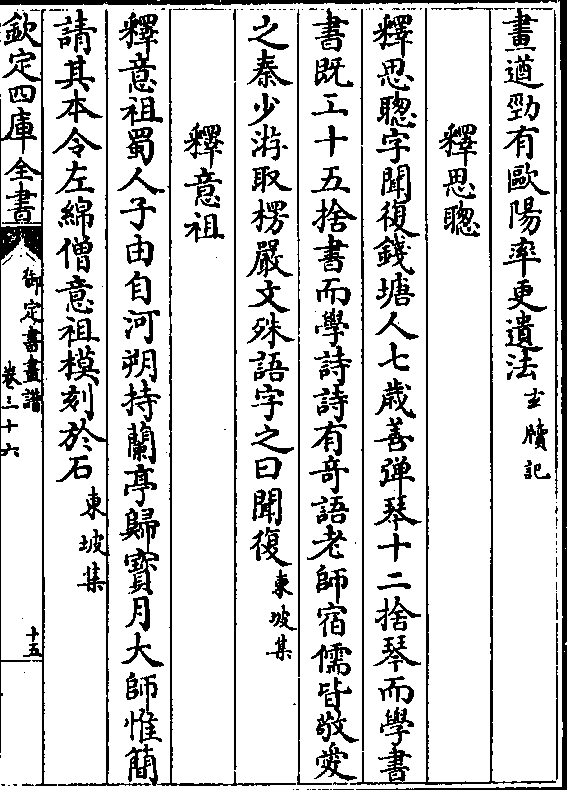 畫遒勁有歐陽率更遺法玉牘記
釋思聰
釋思聰字聞復錢塘人七歲善弾琴十二捨琴而學書
書既工十五捨書而學詩詩有竒語老師宿儒皆敬愛
之秦少游取楞嚴文殊語字之曰聞復東坡集
釋意祖
釋意祖蜀人子由自河朔持蘭亭歸寳月大師惟簡
請其本令左綿僧意祖模刻於石東坡集
欽定四庫全書
御定書畫譜
卷三十六
十五